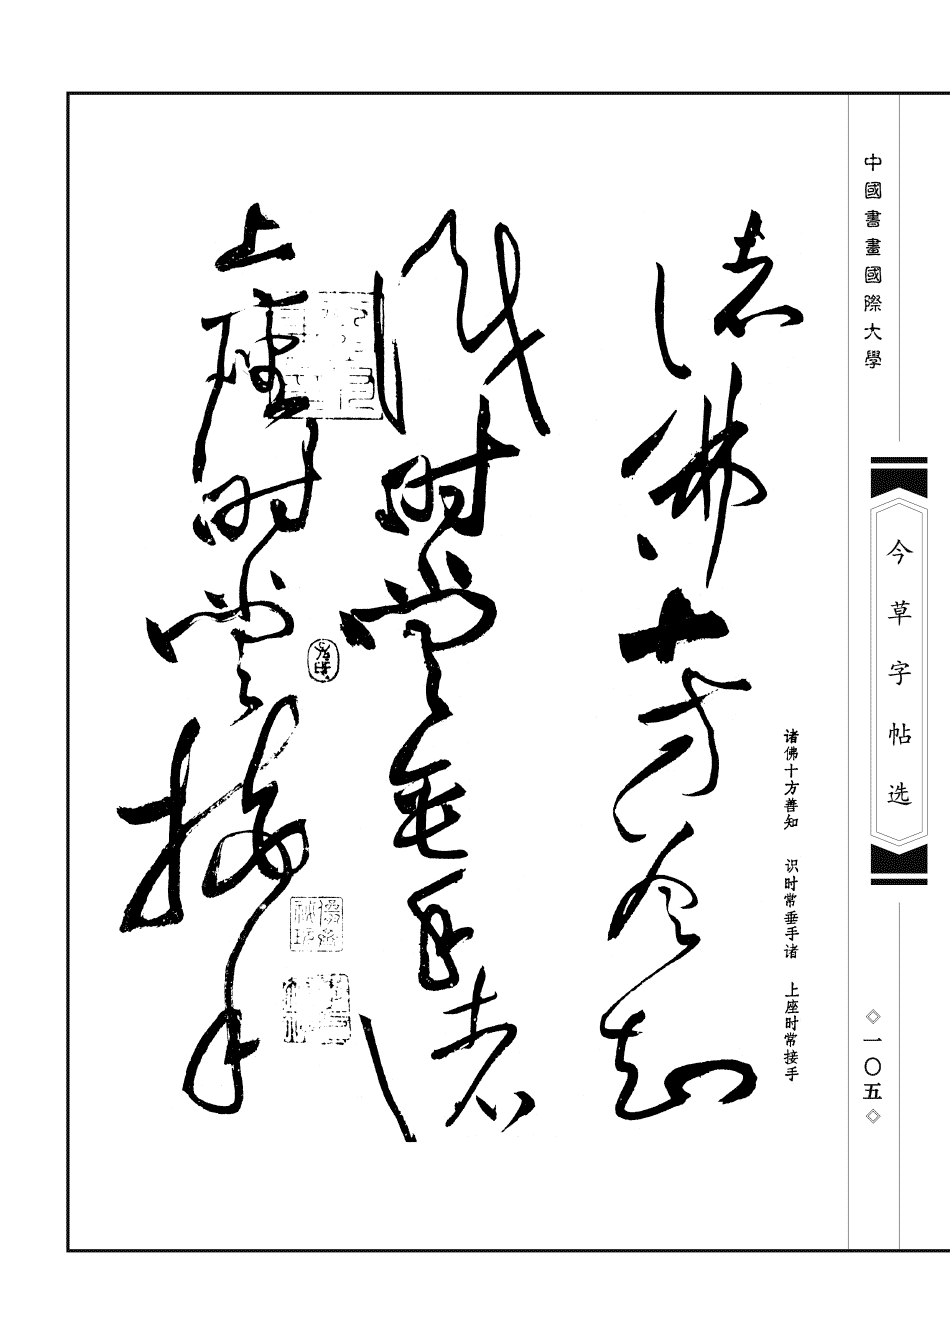 中國書畫國際大學
今草字帖选
一〇五
诸佛十方善知 识时常垂手诸 上座时常接手
诸佛十方善知
识时常垂手诸
上座时常接手